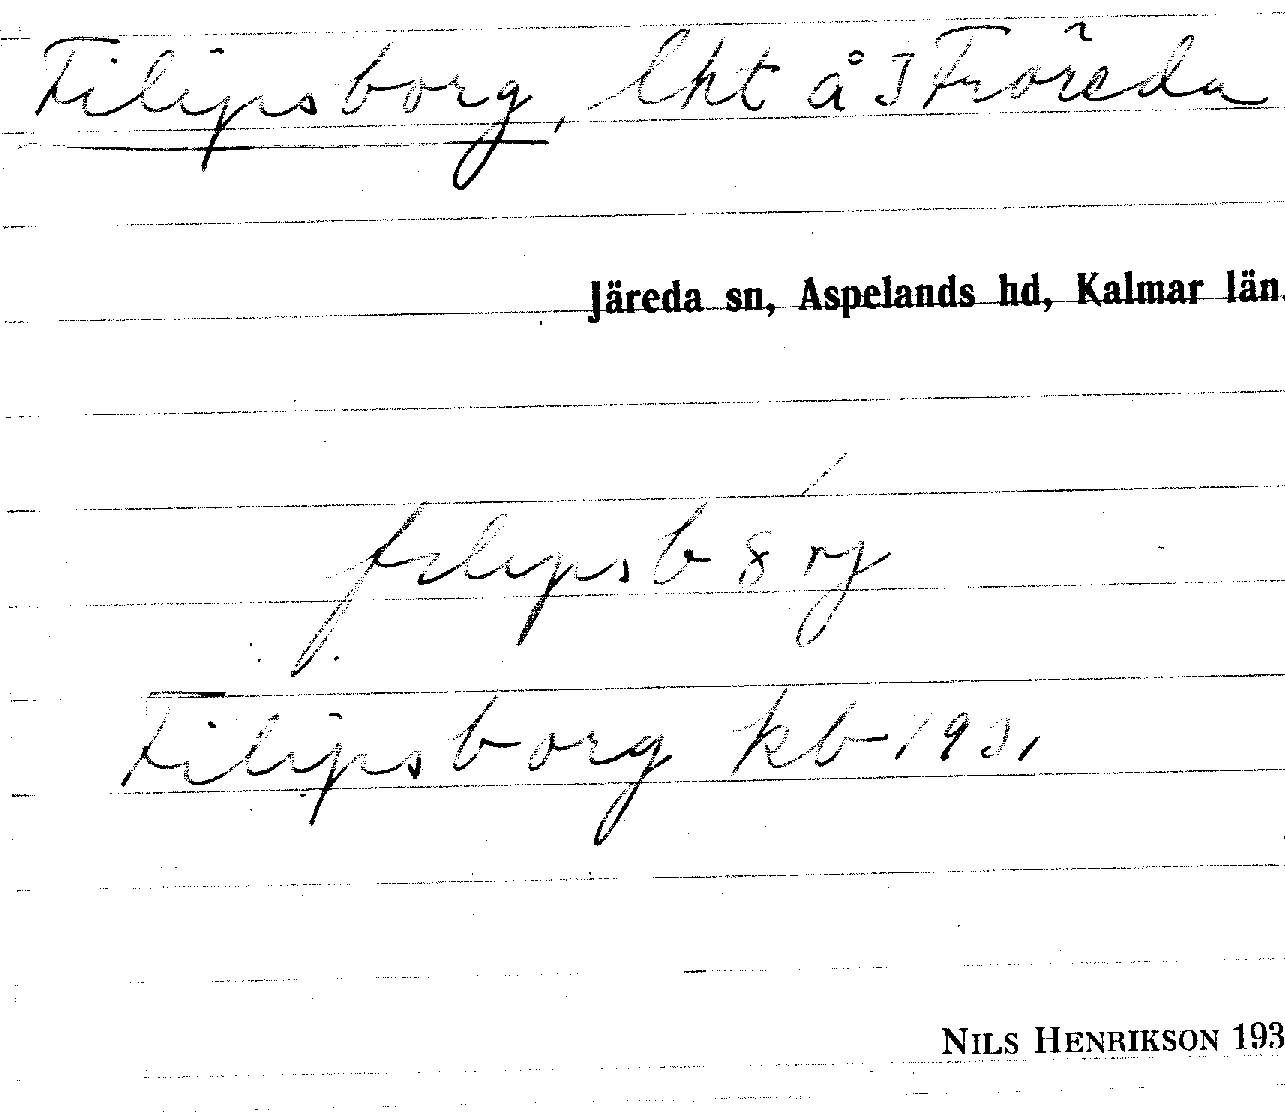 Filipsborg, lht å 1 Fröreda
Järeda sn, Aspelands hd, Kalmar län.
filipsbȣrj
Filipsborg kb 1931
NILS HENRIKSON 193